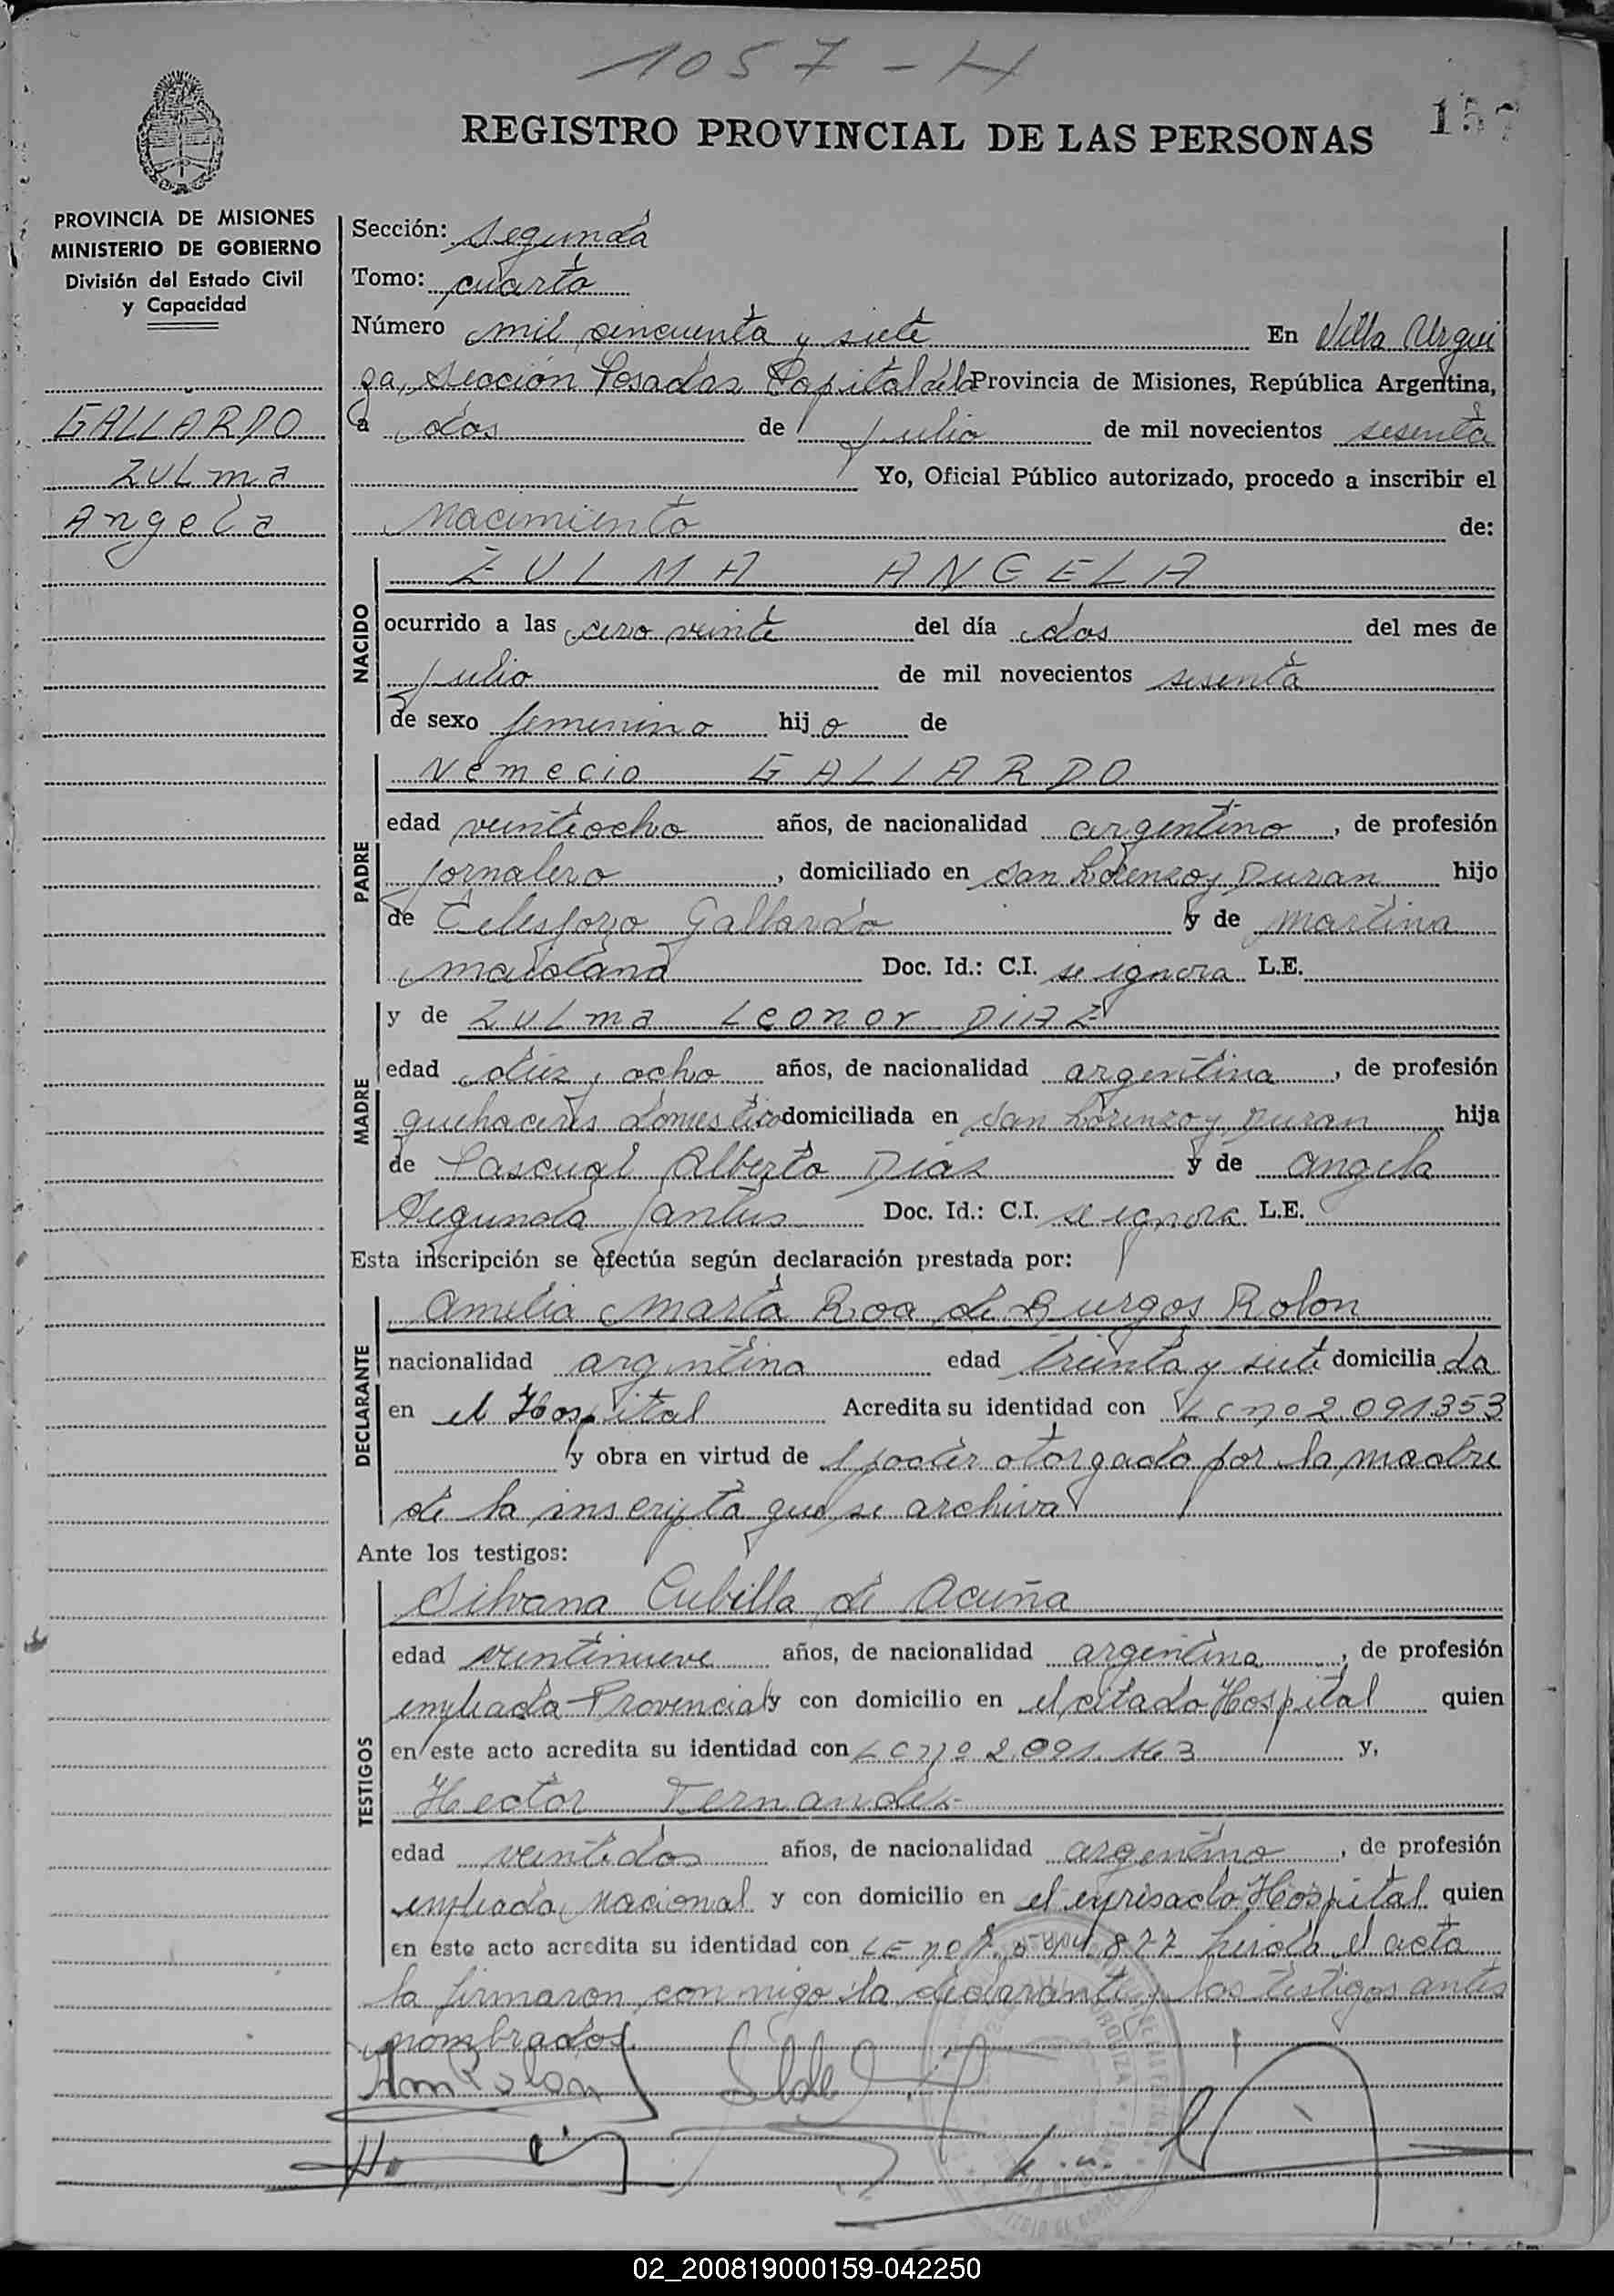 1057 - H
157
REGISTRO PROVINCIAL DE LAS PERSONAS
PROVINCIA DE MISIONES
MINISTERIO DE GOBIERNO
División del Estado Civil
y Capacidad
GALLARDO
ZULma
Angela
Sección: Segunda
Tomo: cuarto
Número mil cincuenta y siete En Villa Urqui
za, Sección Posadas Capital de la Provincia de Misiones, República Argentina,
a dos de Julio de mil novecientos sesenta
Yo, Oficial Público autorizado, procedo a inscribir el
Nacimiento de:
NACIDO
ZULMA ANGELA
ocurrido a las cero veinte del día dos del mes de
Julio de mil novecientos sesenta
de sexo femenino hij a de
PADRE
Nemecio GALLARDO
edad veintiocho años, de nacionalidad argentino, de profesión
Jornalero, domiciliado en San Lorenzo y Duran hijo
de Telesforo Gallardo y de Martina
Doc. Id.: C.I. se ignora L.E.
MADRE
y de ZULma Leonor DIAZ
edad diez y ocho años, de nacionalidad argentina, de profesión
quehaceres domestico domiciliada en San Lorenzo y Duran hija
de Pascual Alberto Dias y de Angela
Segunda Santus Doc. Id.: C.I. se ignora L.E.
Esta inscripción se efectúa según declaración prestada por:
DECLARANTE
Amelia Marta Roa de Burgos Rolon
nacionalidad argentina edad treinta y siete domicilia da
en el Hospital Acredita su identidad con LC nº 2.091.353
y obra en virtud de poder otorgado por la madre
de la inscripta que se archiva
Ante los testigos:
TESTIGOS
Silvana Cubilla de Acuña
edad veintinueve años, de nacionalidad argentina, de profesión
empleada Provincial y con domicilio en el citado Hospital quien
en este acto acredita su identidad con LC nº 2.091.163 y,
Hector Fernandez
edad veintidos años, de nacionalidad argentino, de profesión
empleado Nacional y con domicilio en el expresado Hospital quien
en este acto acredita su identidad con LE nº 877 Leida el acta
la firmaron conmigo la declarante y los testigos antes
nombrados.
02_200819000159-042250